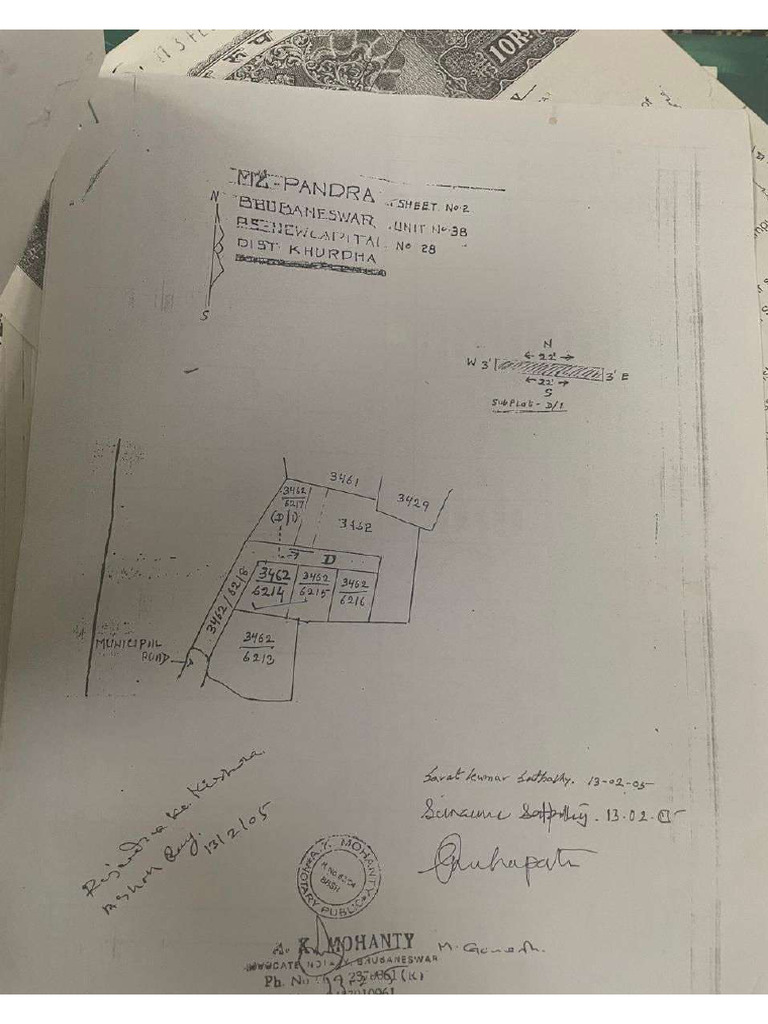 10R
MZ-PANDRA SHEET NO.2
BHUBANESWAR, UNIT NO.38
P.S-NEW CAPITAL NO 28
DIST KHURDHA
N
S
N
← 22' →
W 3' 3' E
← 22' →
S
SUBPLOT- D/1
3461
3462
6217
(D/1)
3429
3462
D
3462/6218
3462
6214
3462
6215
3462
6216
3462
6213
MUNICIPAL
ROAD
Sarat Kumar Satpathy. 13-02-05
13.02.05
13/2/05
A.Y. MOHANTY
NOTARY PUBLIC
A. K. MOHANTY
ADVOCATE NOTARY, BHUBANESWAR
Ph. No
M. Ganesh.